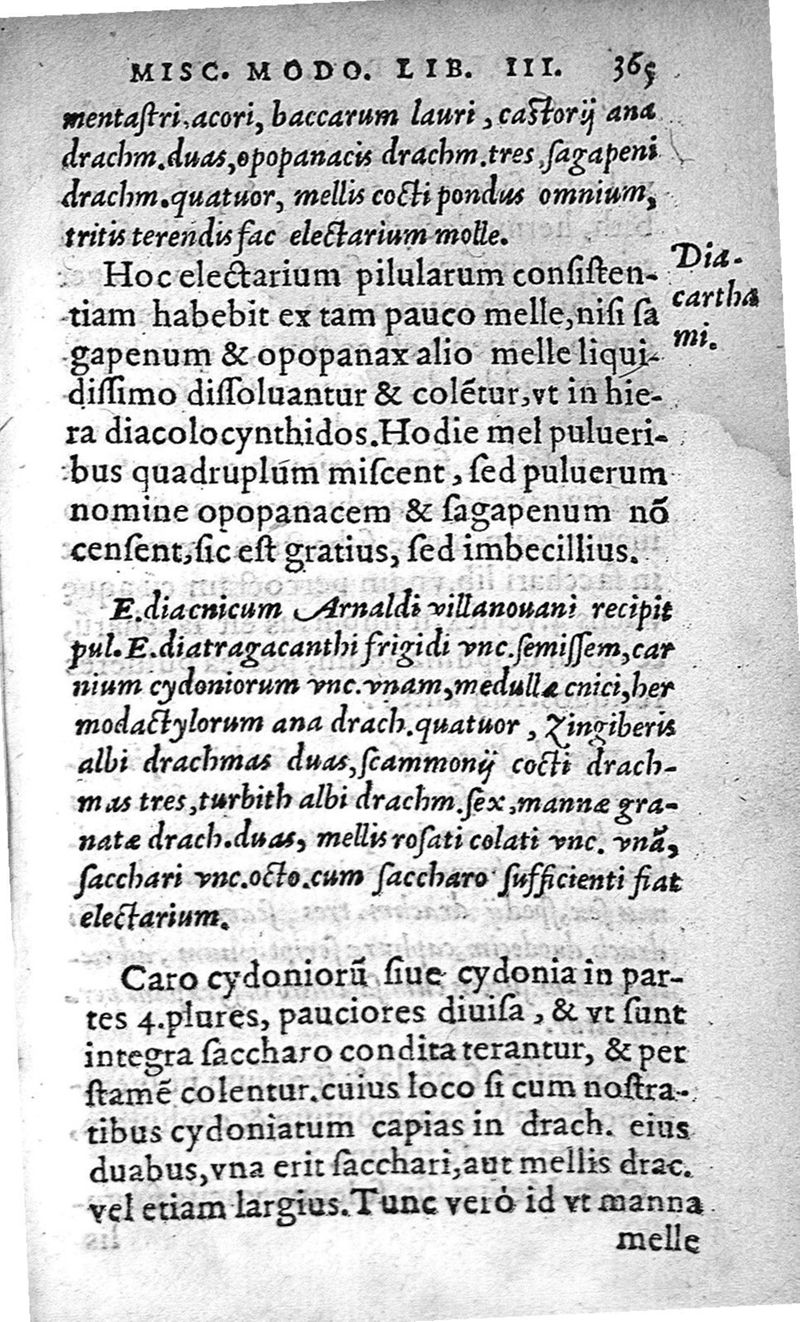 MISC. MODO. LIB. III. 365
mentaſtri, acori, baccarum lauri, caſtorij ana
drachm. duas, opopanacis drachm. tres, ſagapeni
drachm. quatuor, mellis cocti pondus omnium,
tritis terendis fac electarium molle.
Hoc electarium pilularum conſiſten-
Dia-
tiam habebit ex tam pauco melle, niſi ſa
cartha
gapenum & opopanax alio melle liqui-
mi.
diſſimo diſſoluantur & colẽtur, vt in hie-
ra diacolocynthidos. Hodie mel pulueri-
bus quadruplum miſcent, ſed puluerum
nomine opopanacem & ſagapenum nõ
cenſent, ſic eſt gratius, ſed imbecillius.
E. diacnicum Arnaldi villanouani recipit
pul. E. diatragacanthi frigidi vnc. ſemiſſem, car
nium cydoniorum vnc. vnam, medullæ cnici, her
modactylorum ana drach. quatuor, Zingiberis
albi drachmas duas, ſcammonij cocti drach-
mas tres, turbith albi drachm. ſex, mannæ gra-
natæ drach. duas, mellis roſati colati vnc. vnã,
ſacchari vnc. octo. cum ſaccharo ſufficienti fiat
electarium.
Caro cydoniorũ ſiue cydonia in par-
tes 4. plures, pauciores diuiſa, & vt ſunt
integra ſaccharo condita terantur, & per
ſtamẽ colentur. cuius loco ſi cum noſtra-
tibus cydoniatum capias in drach. eius
duabus, vna erit ſacchari, aut mellis drac.
vel etiam largius. Tunc verò id vt manna
melle